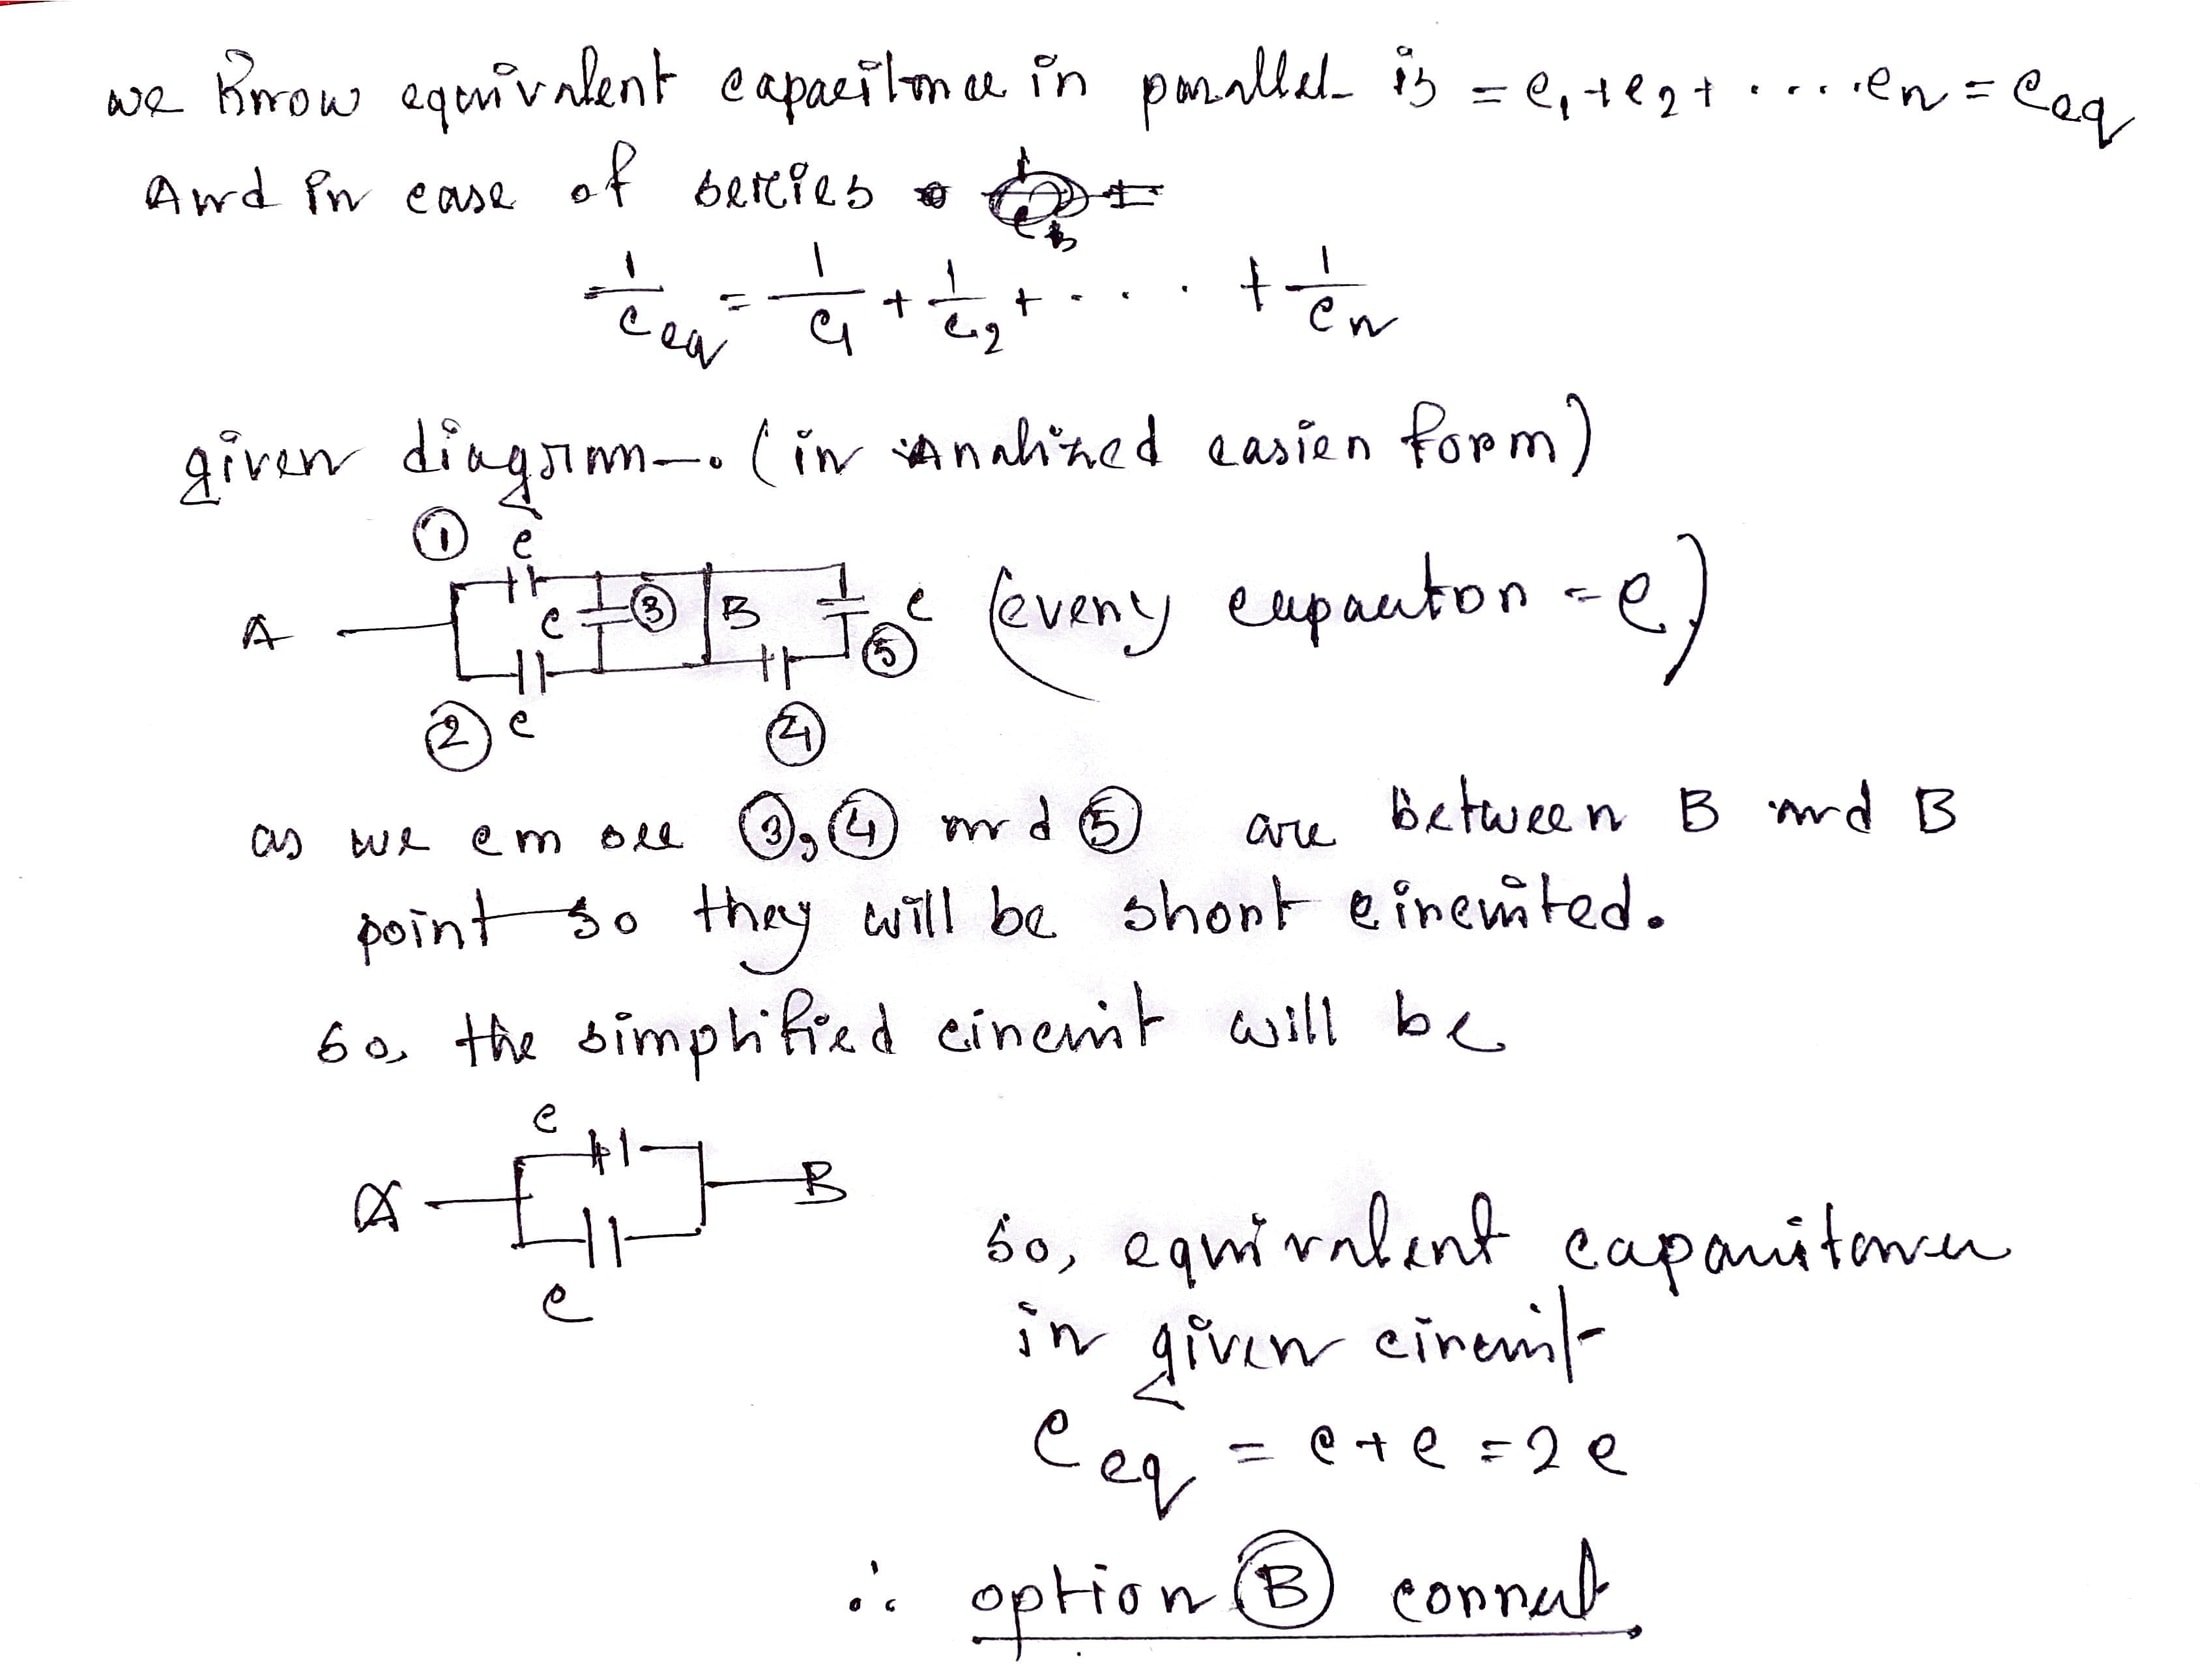 we know equivalent capacitance in parallel is = c₁+c₂+ .....cn = Ceq
And in case of series
1/Ceq = 1/C₁ + 1/C₂ + .... + 1/Cn
given diagram (in Analized easier form)
① c
A c ③ B c (every capacitor = c)
⑤
② c ④
as we can see ③, ④ and ⑤ are between B and B
point so they will be short circuited.
so, the simplified circuit will be
c
A B
c
so, equivalent capacitance
in given circuit
Ceq = c+c = 2c
∴ option Ⓑ correct.